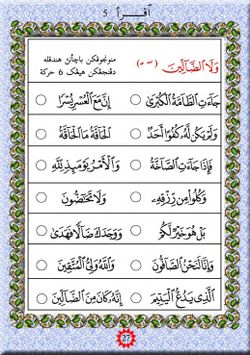 اقرأ 5
وَلَا الضَّالِّينَ (~ ~)
منونجوقكن باچأن هندقله دفنجڠكن هيڠݢ 6 حركة
جَاءَتِ الطَّامَّةُ الْكُبْرَىٰ ○ إِنَّ مَعَ الْعُسْرِ يُسْرًا ○
وَلَمْ يَكُن لَّهُ كُفُوًا أَحَدٌ ○ الْحَاقَّةُ مَا الْحَاقَّةُ ○
فَإِذَا جَاءَتِ الصَّاخَّةُ ○ وَالْأَمْرُ يَوْمَئِذٍ لِلَّهِ ○
وَكُلُوا مِن رِّزْقِهِ ○ وَلَا تَحَاضُّونَ ○
بَلْ هُوَ خَيْرٌ لَّكُمْ ○ وَوَجَدَكَ ضَالًّا فَهَدَىٰ ○
وَإِنَّا لَنَحْنُ الصَّافُّونَ ○ وَاللَّهُ وَلِيُّ الْمُتَّقِينَ ○
الَّذِي يَدُعُّ الْيَتِيمَ ○ إِنَّهُ كَانَ مِنَ الضَّالِّينَ ○
27